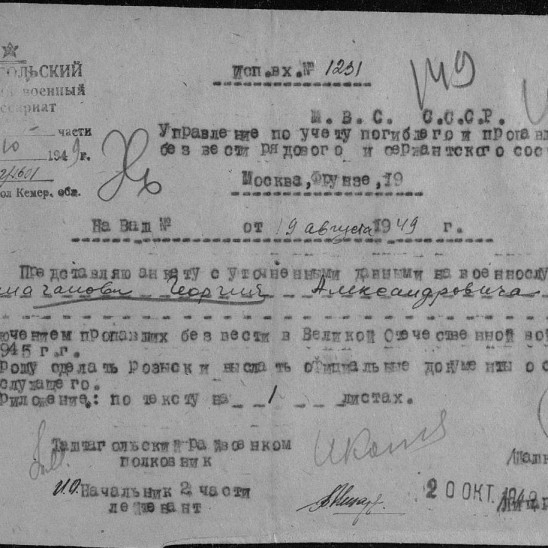 ОЛЬСКИЙ
военный
ссариат
части
194 9 г.
ол Кемер. обл.
Исп.вх.№ 1231
М. В. С. С.С.С.Р.
Управление по учету погиблего и пропав
без вести рядового и сержантского сос
Москва, Фрунзе, 19
На Ваш № от 19 августа 1949 г.
Представляю анкету с уточненными данными на военнослу
Георгия Александровича
ючением пропавших без вести в Великой Отечественной во
1945 г.г.
рошу сделать розыск и выслать официальные документы о с
служащего.
риложение: по тексту на 1 листах.
Таштагольский райвоенком
полковник
И.О. Начальник 2 части
лейтенант
20 ОКТ. 1949